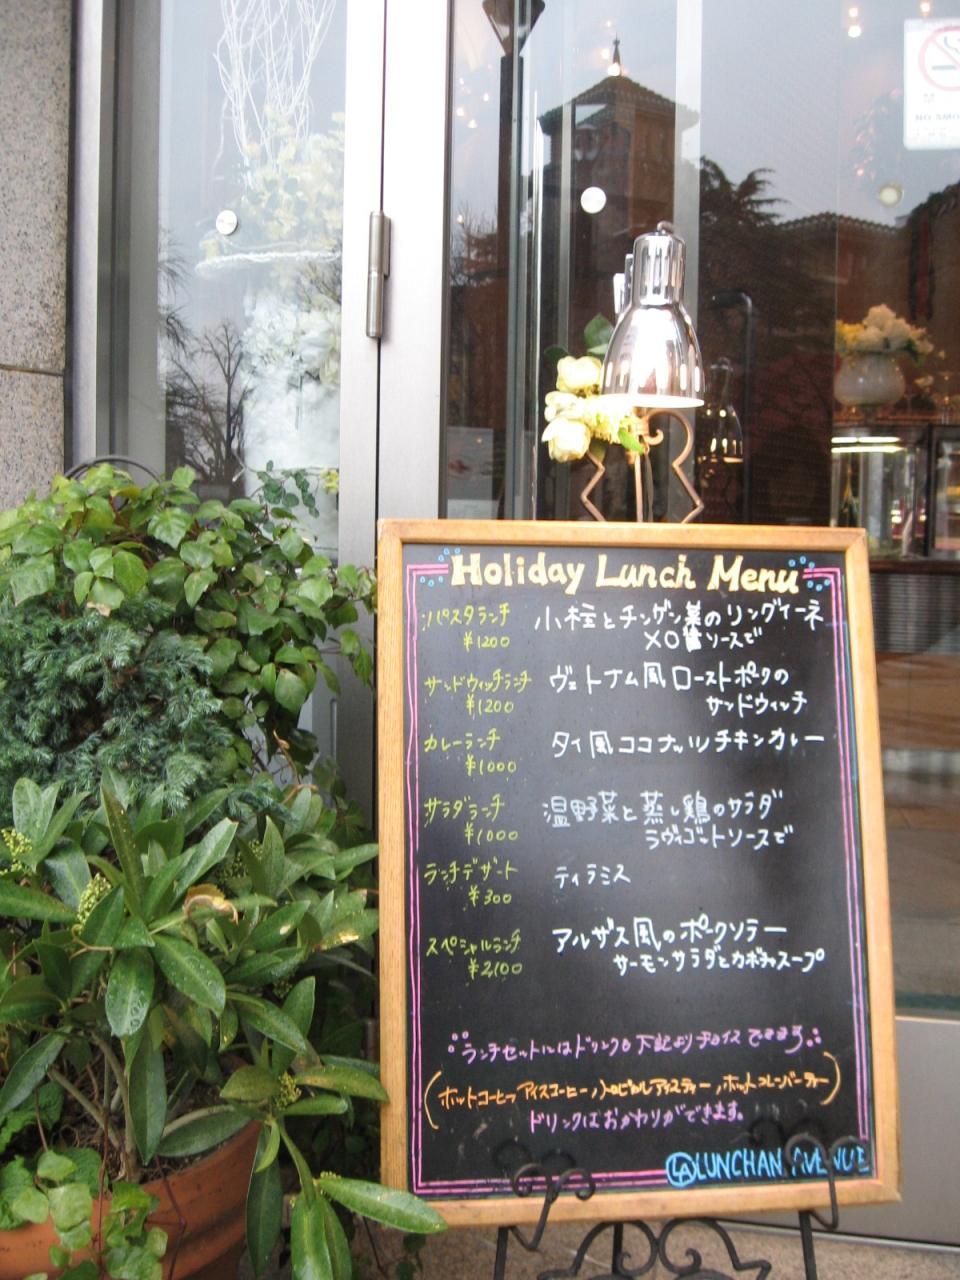 NO SMO
Holiday Lunch Menu
パスタランチ 小柱とチンゲン菜のリングィーネ
¥1200 XO醤ソースで
サンドウィッチランチ ヴェトナム風ローストポークの
¥1200 サンドウィッチ
カレーランチ タイ風ココナッツチキンカレー
¥1000
サラダランチ 温野菜と蒸し鶏のサラダ
¥1000 ラヴィゴットソースで
ランチデザート ティラミス
¥300
スペシャルランチ アルザス風のポークソテー
¥2100 サーモンサラダとカボチャスープ
ランチセットにはドリンクも下記よりチョイスできます
(ホットコーヒー,アイスコーヒー,トロピカルアイスティー,ホットコレンバーティー)
ドリンクはおかわりができます。
LA LUNCHAN AVENUE